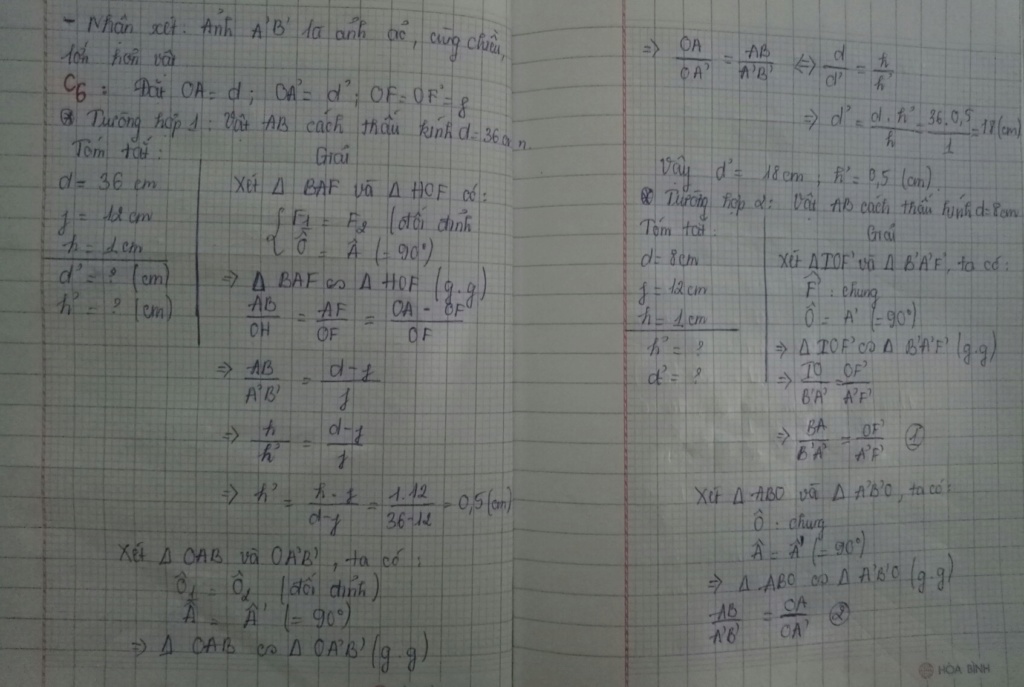 - Nhận xét: Ảnh A'B' là ảnh ảo, cùng chiều,
lớn hơn vật
C6: Đặt OA = d; OA' = d'; OF = OF' = f
* Trường hợp 1: Vật AB cách thấu kính d = 36cm.
Tóm tắt: Giải
d = 36 cm
f = 12cm
h = 1cm
d' = ? (cm)
h' = ? (cm)
Xét Δ BAF và Δ HOF có:
{ F1 = F2 (đối đỉnh
Ô = Â (= 90°)
⇒ Δ BAF ∽ Δ HOF (g.g)
AB/OH = AF/OF = OA - OF/OF
⇒ AB/A'B' = d-f/f
⇒ h/h' = d-f/f
⇒ h' = h.f/d-f = 1.12/36-12 = 0,5(cm)
Xét Δ OAB và OA'B', ta có:
Ô1 = Ô2 (đối đỉnh)
 = Â' (= 90°)
⇒ Δ OAB ∽ Δ OA'B' (g.g)
⇒ OA/OA' = AB/A'B' ⇔ d/d' = h/h'
⇒ d' = d.h'/h = 36.0,5/1 = 18(cm)
Vậy d' = 18cm; h' = 0,5 (cm)
* Trường hợp 2: Vật AB cách thấu kính d = 8cm
Tóm tắt: Giải
d = 8cm
f = 12cm
h = 1cm
h' = ?
d' = ?
Xét Δ IOF' và Δ B'A'F', ta có:
F̂ : chung
Ô = A' (= 90°)
⇒ Δ IOF' ∽ Δ B'A'F' (g.g)
⇒ IO/B'A' = OF'/A'F'
⇒ BA/B'A' = OF'/A'F' ①
Xét Δ ABO và Δ A'B'O, ta có:
Ô : chung
 = Â' (= 90°)
⇒ Δ ABO ∽ Δ A'B'O (g.g)
AB/A'B' = OA/OA' ②
HÒA BÌNH